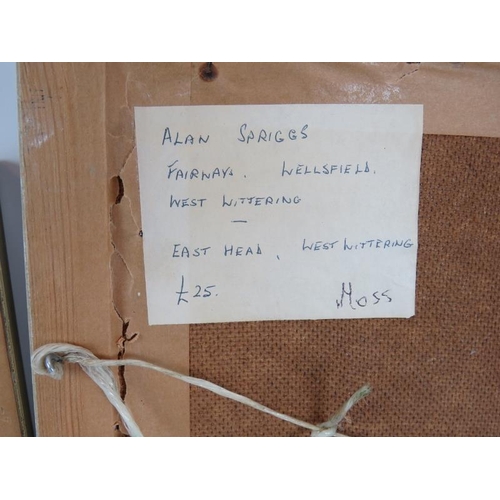 ALAN SPRIGGS
FAIRWAYS. WELLSFIELD.
WEST WITTERING
—
EAST HEAD, WEST WITTERING
£25. Moss